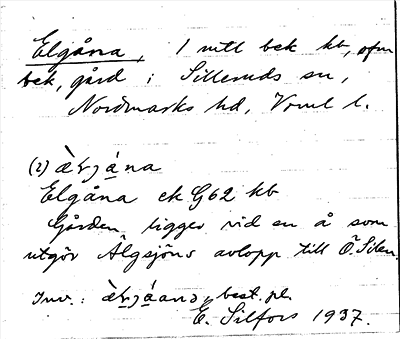 Elgåna, 1 mtl bek kb, ofvan
bek, gård i Silleruds sn,
Nordmarks hd, Vrml l.
(2) ὰɽjána
Elgåna ek G62 kb
Gården ligger vid en å som
utgör Älgsjöns avlopp till Ö. Silen.
Inv.: ὰɽjáana, best. pl.
E. Silfors 1937.